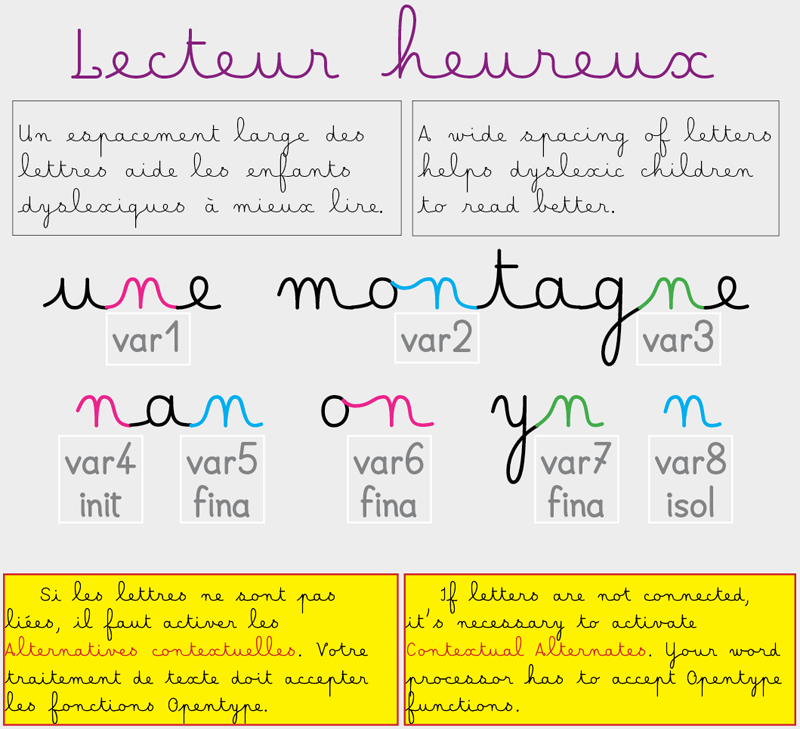 Lecteur heureux
Un espacement large des
lettres aide les enfants
dyslexiques à mieux lire.
A wide spacing of letters
helps dyslexic children
to read better.
une montagne
var1 var2 var3
nan on yn n
var4 var5 var6 var7 var8
init fina fina fina isol
Si les lettres ne sont pas
liées, il faut activer les
Alternatives contextuelles. Votre
traitement de texte doit accepter
les fonctions Opentype.
If letters are not connected,
it's necessary to activate
Contextual Alternates. Your word
processor has to accept Opentype
functions.